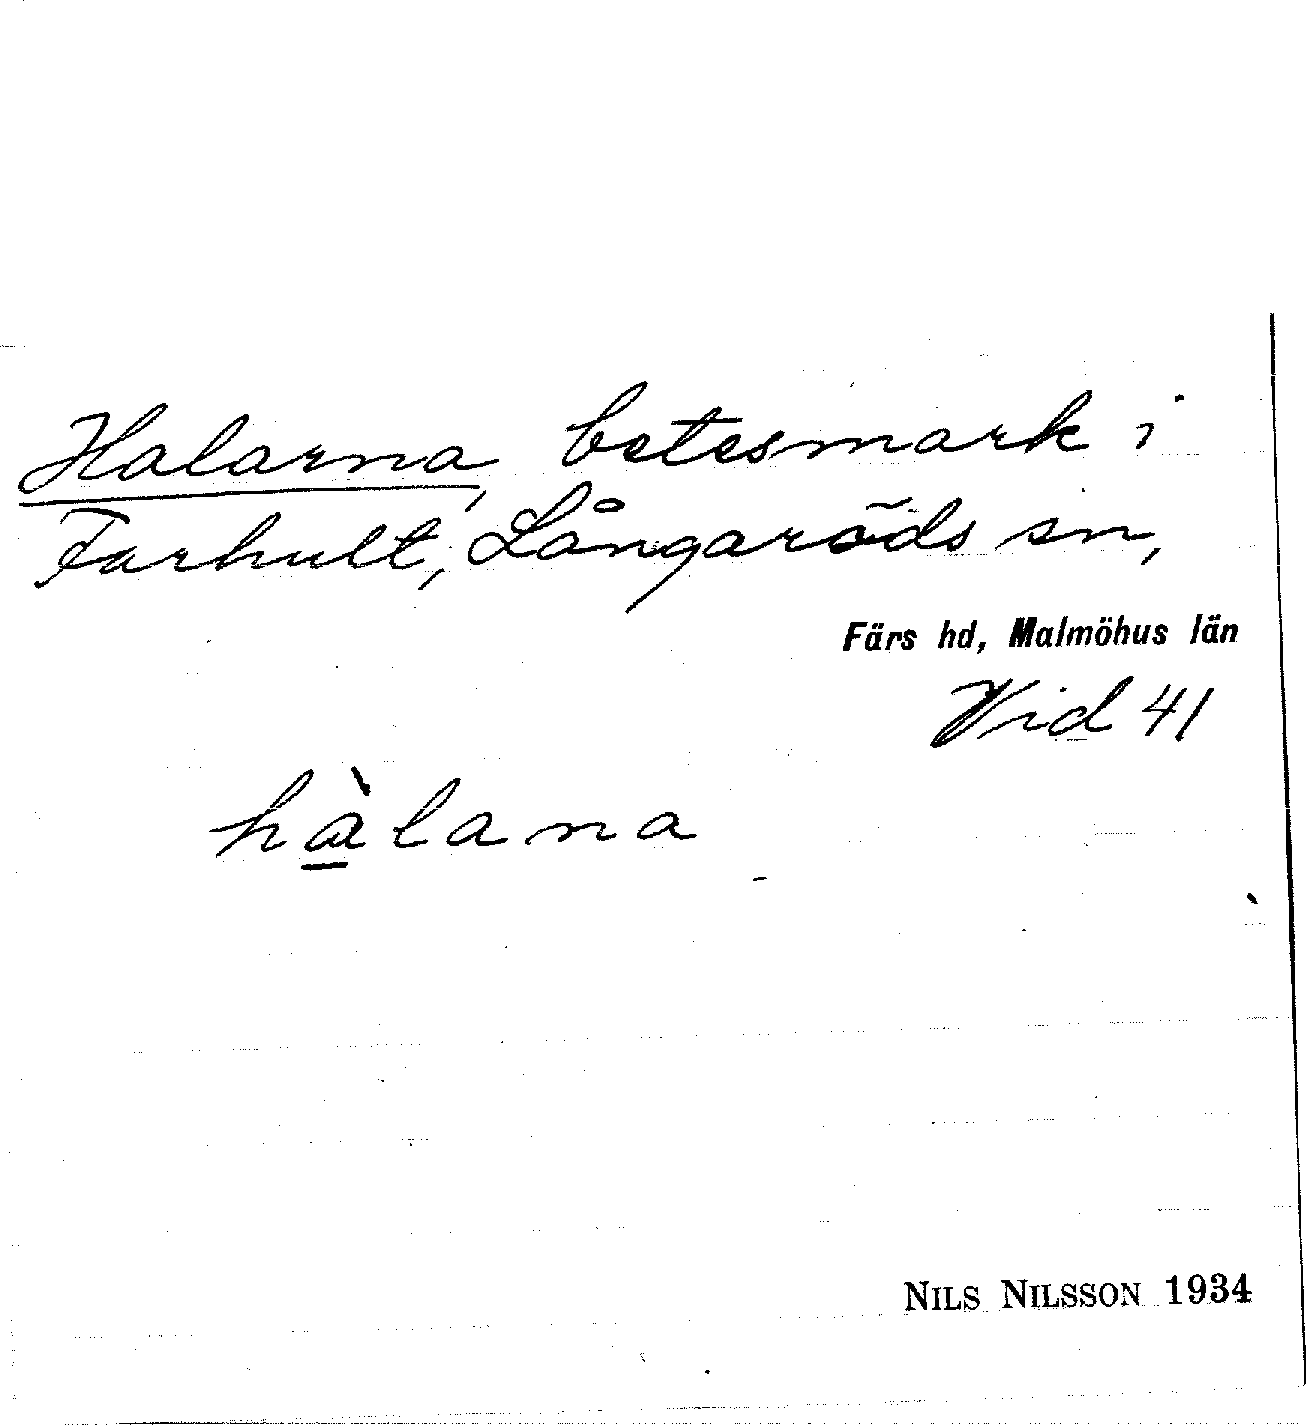 Halarna, betesmark i
Farhult, Långaröds sn,
Färs hd, Malmöhus län
Vid 41
hàlana
NILS NILSSON 1934